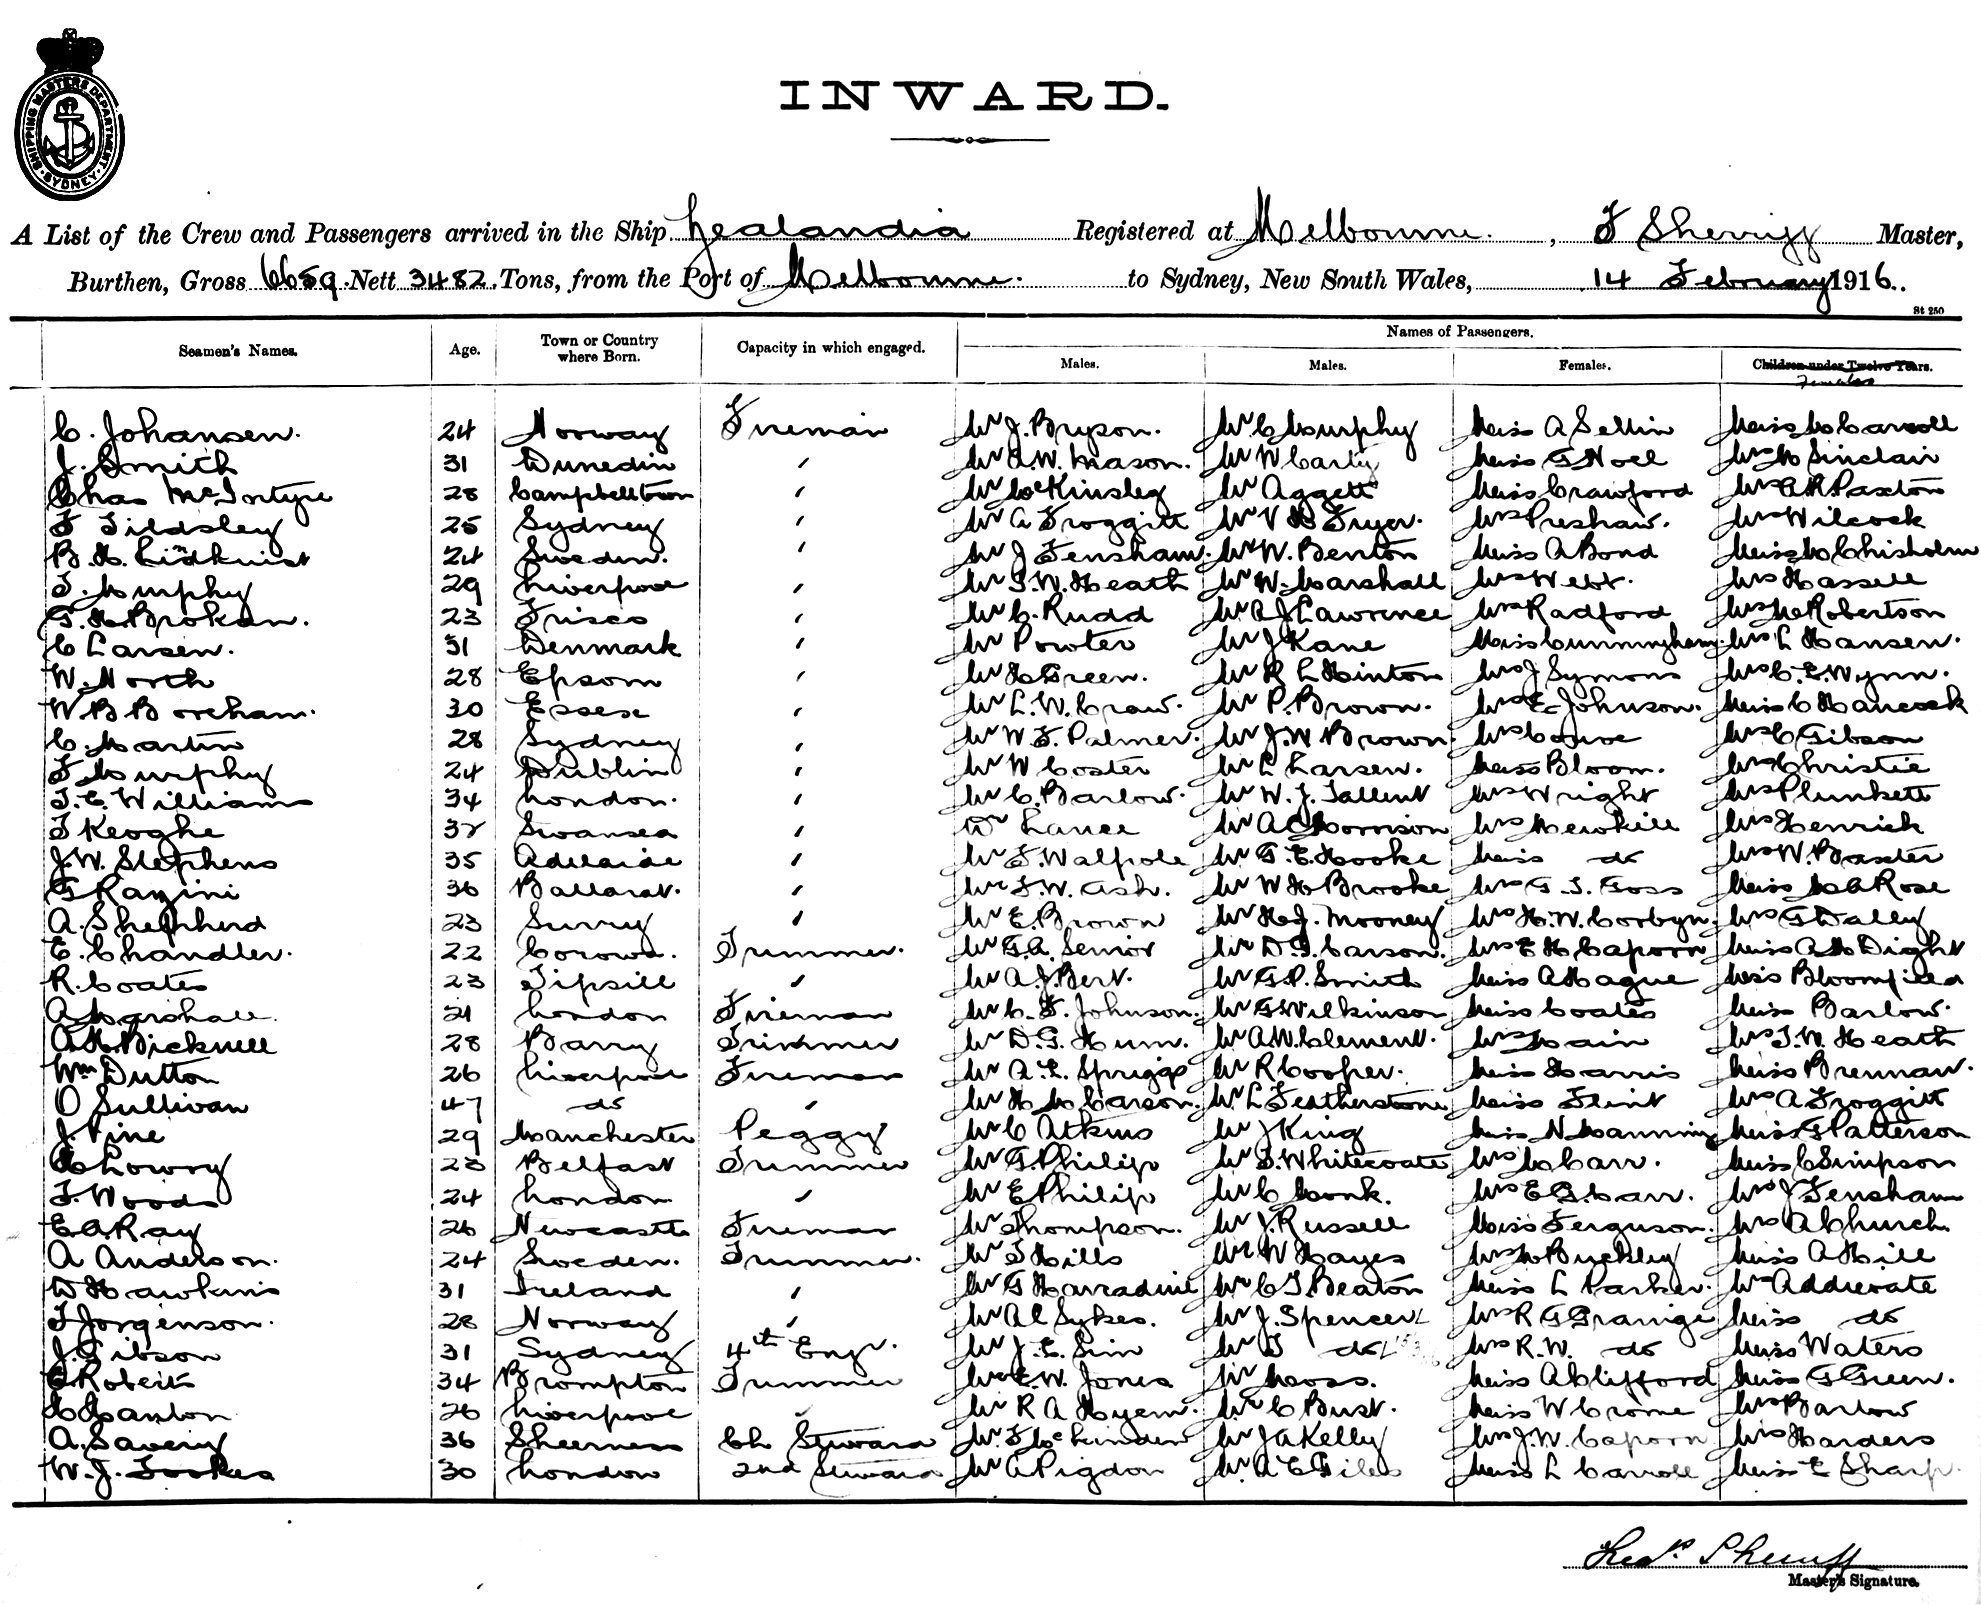 SHIPPING MASTERS DEPARTMENT
SYDNEY
INWARD.
A List of the Crew and Passengers arrived in the Ship Zealandia Registered at Melbourne. , T Sherriff Master,
Burthen, Gross 6659 Nett 3482 Tons, from the Port of Melbourne. to Sydney, New South Wales, 14 February 1916.
St 250
Names of Passengers.
Seamen's Names. Age. Town or Country where Born. Capacity in which engaged. Males. Males. Females. Children under Twelve Years.
Females
C. Johansen. 24 Norway Fireman Mr J. Bryson. Mr C Murphy Miss A Sellin Miss M Carroll
J. Smith 31 Dunedin ' Mr A.W. Mason. Mr W Carty Miss G Noel Mrs M Sinclair
Chas McIntyre 28 Campbelltown ' Mr McKinsley Mr Aggett Miss Crawford Mrs A R Paxton
F Tildsley 25 Sydney ' Mr A Froggitt Mr V H Fryer. Mrs Preshaw. Mrs Wilcock
B.H. Lindkvist 24 Sweden. ' Mr J Fensham. Mr W. Benton Miss A Bond Miss M Chisholm
T. Murphy 29 Liverpool ' Mr T.W. Heath Mr W. Marshall Mrs Webb. Mrs Hassell
G.H. Brokan. 23 Frisco ' Mr C. Rudd Mr A J Lawrence Mrs Radford Mrs M Robertson
C Larsen. 31 Denmark ' Mr Powter Mr J Kane Miss Cunningham Mrs L Hansen.
W. North 28 Epsom ' Mr H Green. Mr R L Hinton Mrs J Symons Mrs C.E. Wynn.
W B Boreham. 30 Essex ' Mr L.W. Craw. Mr P. Brown. Mrs E Johnson. Miss C Hancock
C. Martin 28 Sydney ' Mr W.F. Palmer. Mr J.W Brown. Mrs Mrs C Gibson
F Murphy 24 Dublin ' Mr W Coster Mr L Larsen. Miss Bloom. Mrs Christie
T.E. Williams 34 London. ' Mr C. Barlow. Mr W.J. Tallent Mrs Wright Mrs Plunkett
T Keoghe 32 Swansea ' Lance Mr A C Morrison Mrs Mrs Henrick
J.W. Stephens 35 Adelaide ' Mr F. Walpole Mr G.E. Hooke Miss do Mrs W. Baxter
G Razini 36 Ballarat. ' Mr F.W. Ash. Mr W H Brooke Mrs G.T. Goss Miss M C Rose
A. Shepherd 23 Surry ' Mr E. Brown Mr H.J. Mooney Mrs H.W. Corbyn. Mrs G Dalley
E. Chandler. 22 Corowa. Trimmer. Mr G.A. Senior Mr D.G. Carson. Mrs E H Caporn Miss A M Dight
R. Coates 23 ' Mr A.J. Bert. Mr G.P. Smith Miss A Hague Miss Bloomfield
A Marshall. 21 London Fireman Mr C.F. Johnson. Mr G Wilkinson Miss Coates Miss Barlow.
A.H. Bicknell 28 Barry Trimmer Mr D.G. Hum. Mr A.W. Clement. Mrs Main Mrs T.W. Heath
Wm Dutton 26 Liverpool Fireman Mr A.E. Spriggs Mr R Cooper. Miss Harris Miss Brennan.
O Sullivan 47 do ' Mr H M Carson. Mr L Featherstone Miss Flint Mrs A Froggitt
J. Pine 29 Manchester Peggy Mr C Atkins Mr J King Miss N Manning Miss G Patterson
Lowry 23 Belfast Trimmer Mr G. Philip Mr T. Whitecoate Mrs M Carr. Miss C Simpson
T. Woods 24 London ' Mr E Philip Mr C Monk. Mrs E G. Carr. Mrs J Fensham
E A Ray 26 Newcastle Fireman Mr Thompson. Mr J. Russell Miss Ferguson. Mrs A Church
A Anderson. 24 Sweden. Trimmer. Mr T Hills Mr W Hayes Mrs M Buckley Miss A Hill
W Hawkins 31 Ireland ' Mr G Harradine Mr C T Beaton Miss L Parker. Addiecate
T Jorgenson. 28 Norway ' Mr A C Sykes. Mr J. Spencer Mrs R G Grainge Miss do
J. Gibson 31 Sydney 4th Engr. Mr J.E. Sim Mr T do Mrs R.W. do Miss Waters
E Roberts 34 Brompton Trimmer Mr E.W. Jones Mr Moss. Miss A Clifford Miss G Green.
26 Liverpool ' Mr R A Hyem. Mr C Bust. Miss W Crome Mrs Barlow
A. Savery 36 Sheerness Ch Steward Mr F Mr J A Kelly Mrs J.W. Caporn Mrs Harders
W.J. Fookes 30 London 2nd Steward Mr A Pigdon Mr A E Giles Miss L Carroll Miss E Sharp.
Thos Sherriff
Master's Signature.